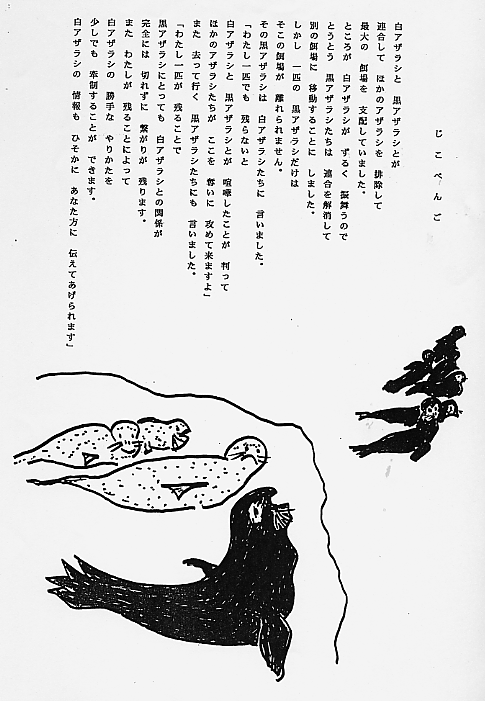 じこべんご
白アザラシと　黒アザラシとが
連合して　ほかのアザラシを　排除して
最大の　餌場を　支配していました。
ところが　白アザラシが　ずるく　振舞うので
とうとう　黒アザラシたちは　連合を解消して
別の餌場に　移動することに　しました。
しかし　一匹の　黒アザラシだけは
そこの餌場が　離れられません。
その黒アザラシは　白アザラシたちに　言いました。
「わたし一匹でも　残らないと
白アザラシと　黒アザラシとが　喧嘩したことが　判って
ほかのアザラシたちが　ここを　奪いに　攻めて来ますよ」
また　去って行く　黒アザラシたちにも　言いました。
「わたし一匹が　残ることで
黒アザラシにとっても　白アザラシとの関係が
完全には　切れずに　繋がりが　残ります。
また　わたしが　残ることによって
白アザラシの　勝手な　やりかたを
少しでも　牽制することが　できます。
白アザラシの　情報も　ひそかに　あなた方に　伝えてあげられます」